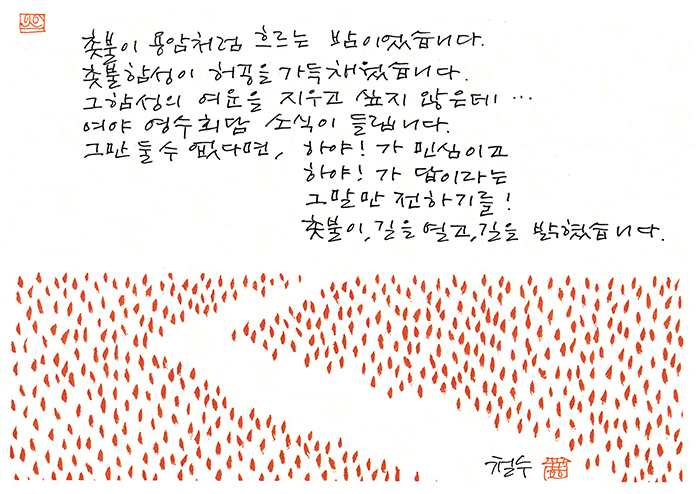 촛불이 용암처럼 흐르는 밤이었습니다.
촛불함성이 허공을 가득 채웠습니다.
그 함성의 여운을 지우고 싶지 않은데…
여야 영수회담 소식이 들립니다.
그만 둘 수 없다면,
하야! 가 민심이고
하야! 가 답이라는
그 말만 전하기를!
촛불이, 길을 열고, 길을 밝혔습니다.
철수